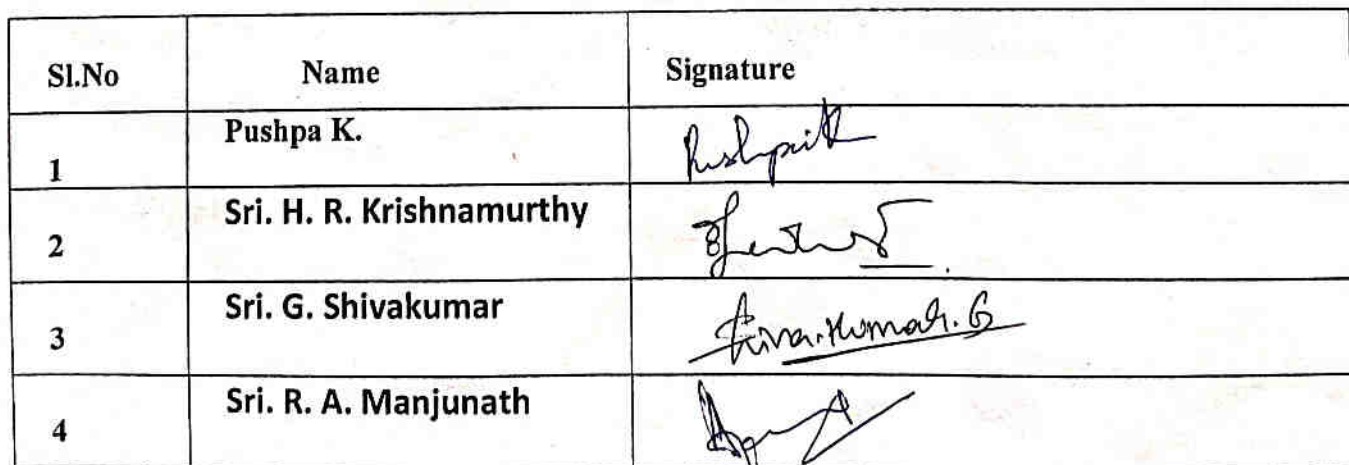 Sl.No Name Signature
1 Pushpa K.
2 Sri. H. R. Krishnamurthy
3 Sri. G. Shivakumar Shivakumar.G
4 Sri. R. A. Manjunath